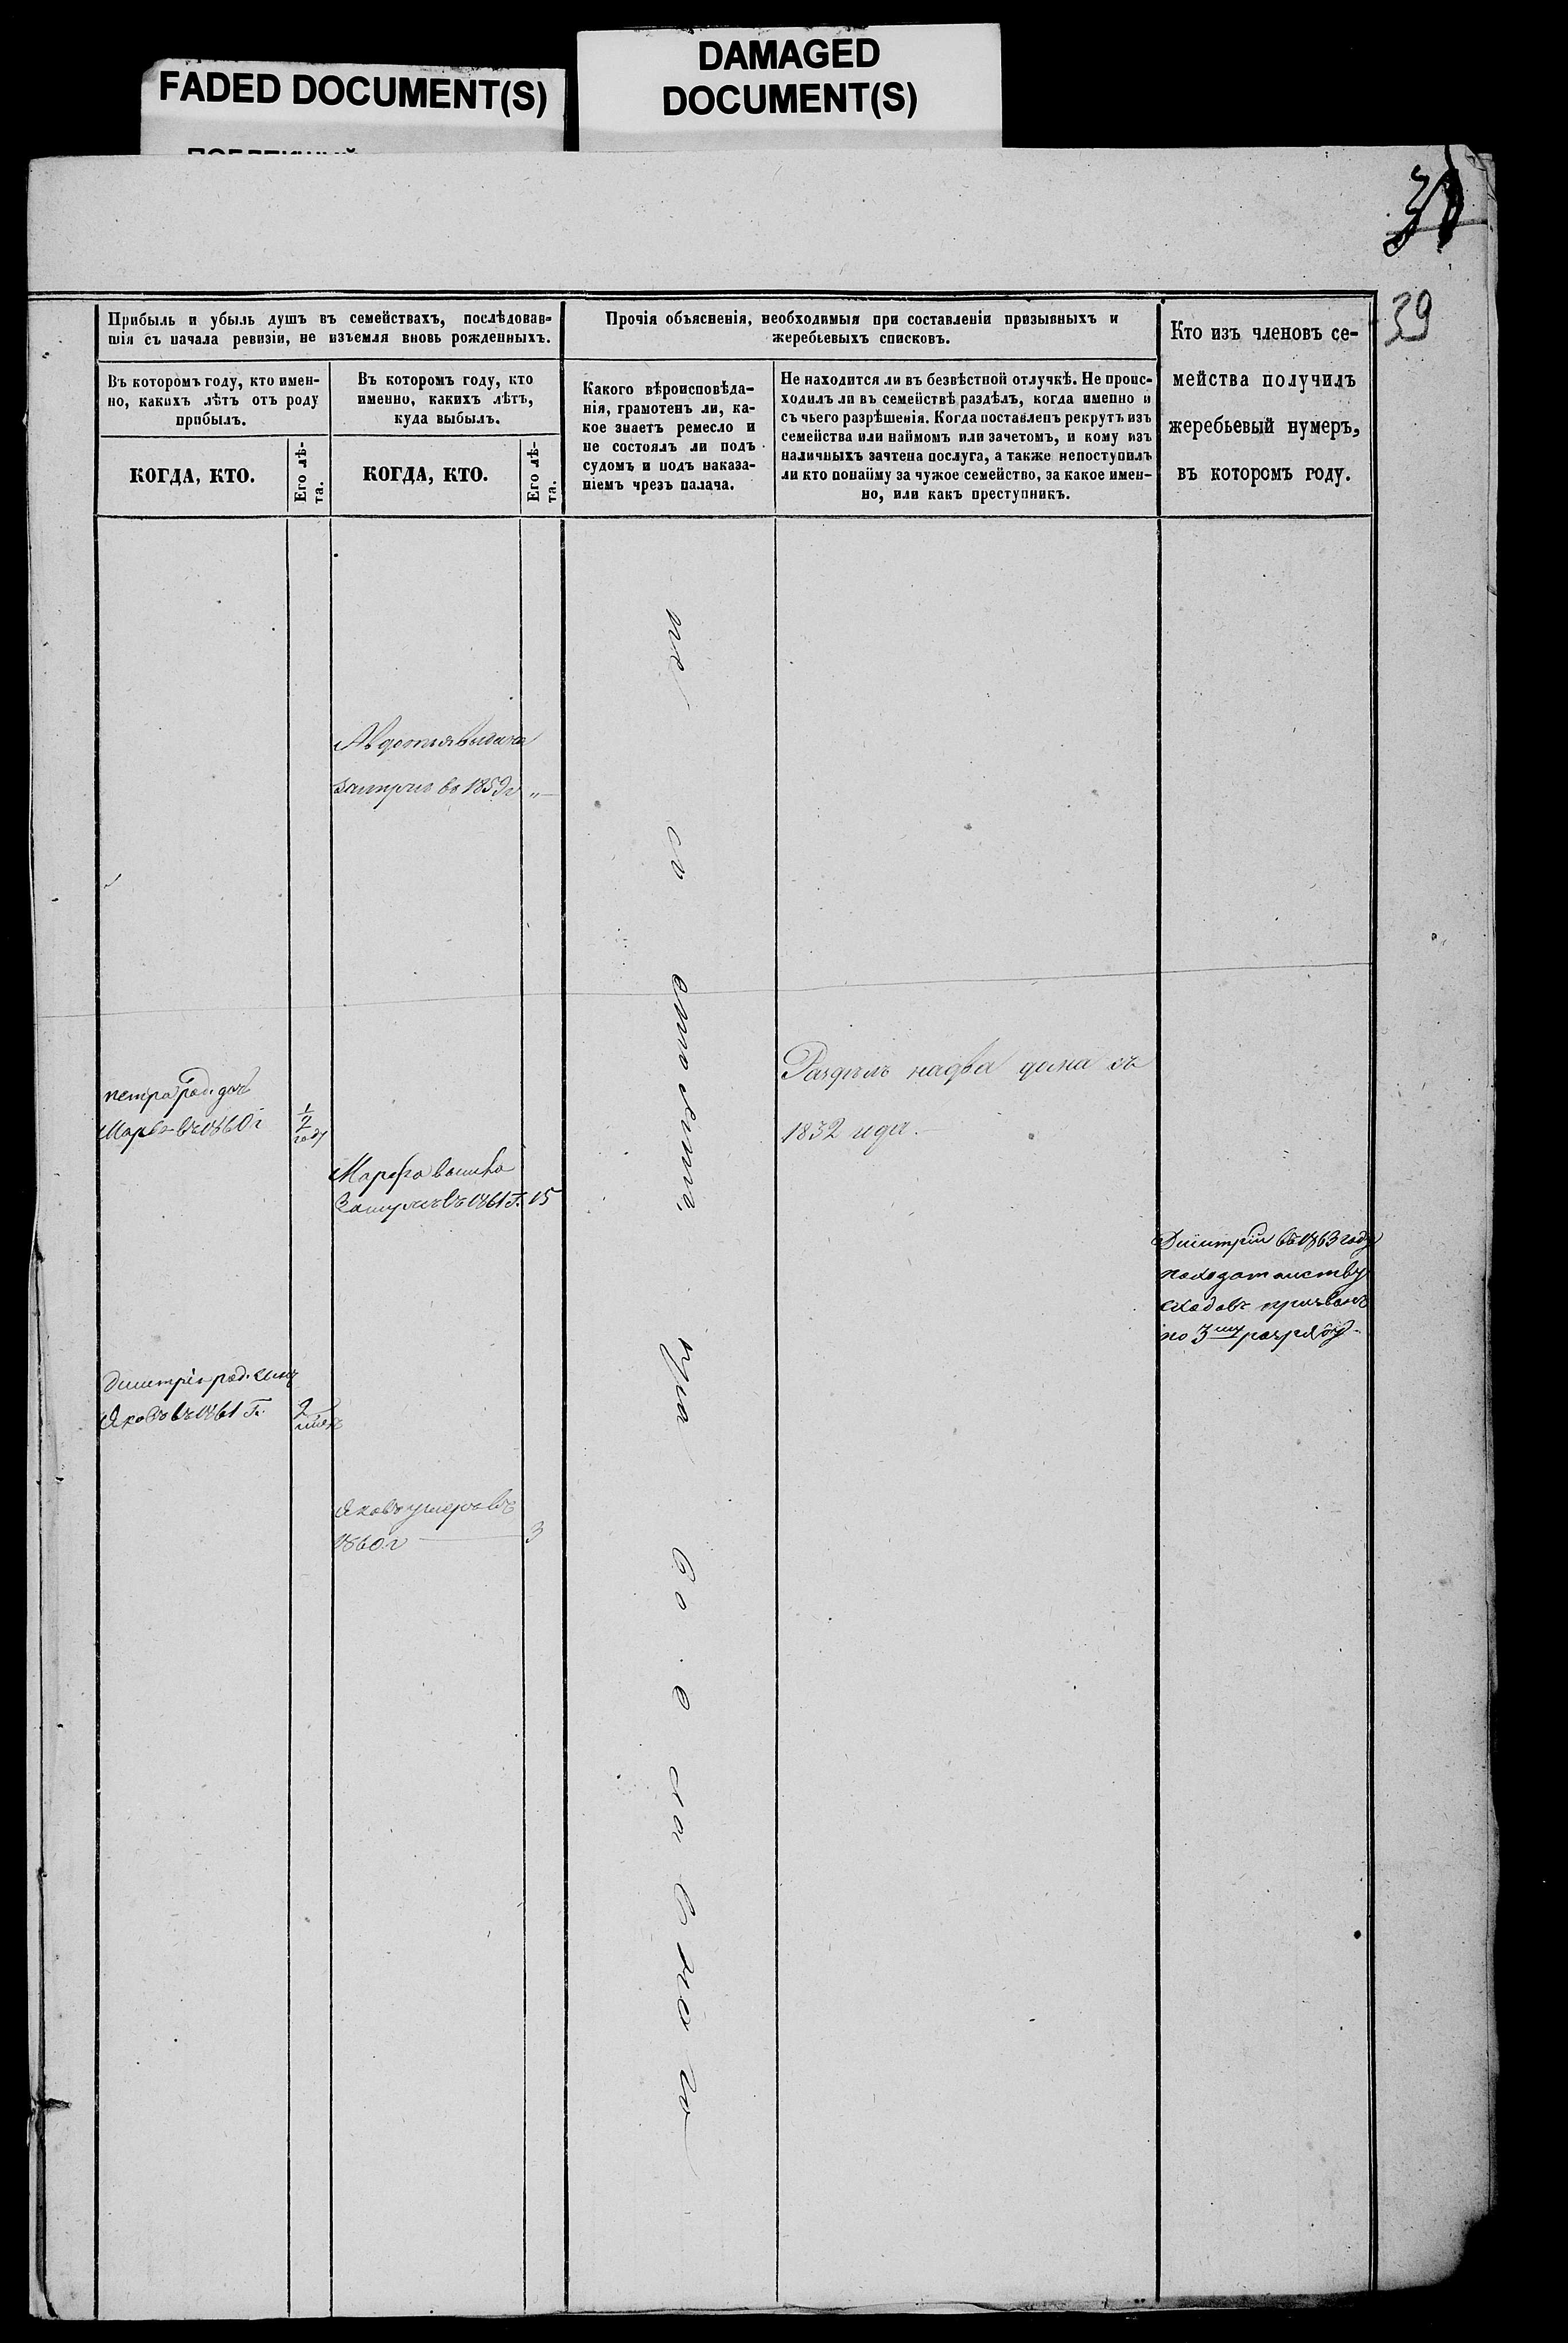 FADED DOCUMENT(S)
DAMAGED
DOCUMENT(S)
39
Прибыль и убыль душъ въ семействахъ, послѣдовав-
шія съ начала ревизіи, не изъемля вновь рожденныхъ.
Въ которомъ году, кто имен-
но, какихъ лѣтъ отъ роду
прибылъ.
КОГДА, КТО.
Его лѣ-
та.
Въ которомъ году, кто
именно, какихъ лѣтъ,
куда выбылъ.
КОГДА, КТО.
Его лѣ-
та.
Прочія объясненія, необходимыя при составленіи призывныхъ и
жеребьевыхъ списковъ.
Какого вѣроисповѣда-
нія, грамотенъ ли, ка-
кое знаетъ ремесло и
не состоялъ ли подъ
судомъ и подъ наказа-
ніемъ чрезъ палача.
Не находится ли въ безвѣстной отлучкѣ. Не проис-
ходилъ ли въ семействѣ раздѣлъ, когда именно и
съ чьего разрѣшенія. Когда поставленъ рекрутъ изъ
семейства или наймомъ или зачетомъ, и кому изъ
наличныхъ зачтена послуга, а также непоступилъ
ли кто понайму за чужое семейство, за какое имен-
но, или какъ преступникъ.
Кто изъ членовъ се-
мейства получилъ
жеребьевый нумеръ,
въ которомъ году.
Авдотья выдана
замужъ въ 1859 г "
петра род. доч
Марья въ 1860 г
1/2 году
Раздѣлъ на два дома съ
1832 года.
Марфа вышла
Замужъ въ 1861 г. 15
Димитрій въ 1863 году
по ходатайству
призванъ
по 3му разряду
Димитрія род. сынъ
Яковъ въ 1861 г.
2
Яковъ умеръ въ
1860 г 3